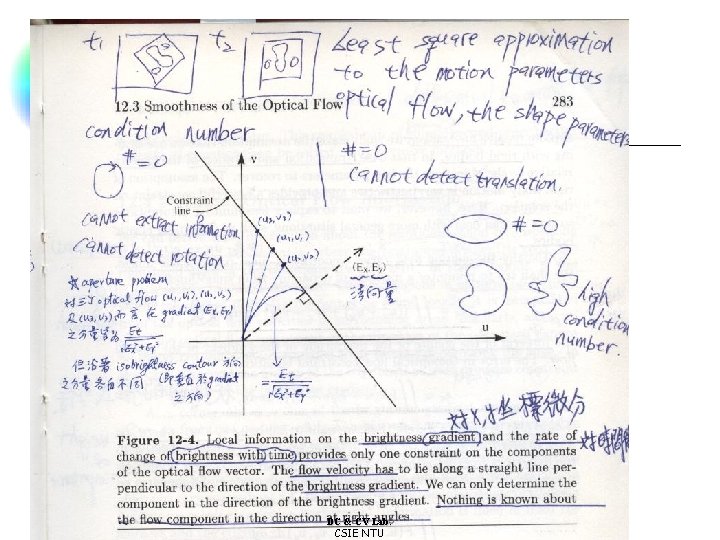 t1 t2
Least square approximation
to the motion parameters
12.3 Smoothness of the Optical Flow
283
optical flow, the shape parameters
condition number
#=0
#=0
cannot detect translation.
v
Constraint
line
(u3,v3)
(u1,v1)
(u2,v2)
cannot extract information
cannot detect rotation
#=0
(Ex,Ey)
high
condition
number.
u
aperture problem
optical flow (u1,v1),(u2,v2)
及(u3,v3)而言, 在 gradient (Ex,Ey)
之方量皆為 Et/√Ex²+Ey²
但沿著 isobrightness contour 方向
之方量各自不同
= Et/√Ex²+Ey²
對 坐標微分
Figure 12-4. Local information on the brightness gradient and the rate of
change of brightness with time provides only one constraint on the components
of the optical flow vector. The flow velocity has to lie along a straight line per-
pendicular to the direction of the brightness gradient. We can only determine the
component in the direction of the brightness gradient. Nothing is known about
the flow component in the direction at right angles.
DC & CV Lab.
CSIE NTU